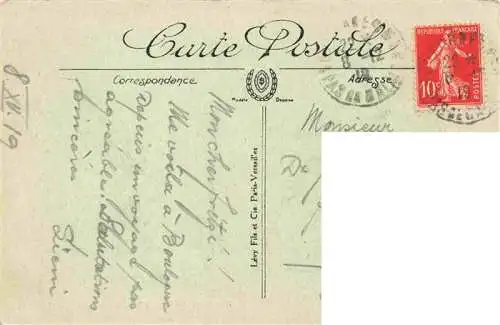 Carte Postale
Correspondance
Adresse
Modèle Déposé
RÉPUBLIQUE FRANÇAISE
10c
POSTES
8 XII. 19
Mon cher
Me voilà à Boulogne
Depuis un voyage pas
agréable. Salutations
sincères
Monsieur
Dr
Lévy Fils et Cie, Paris-Versailles